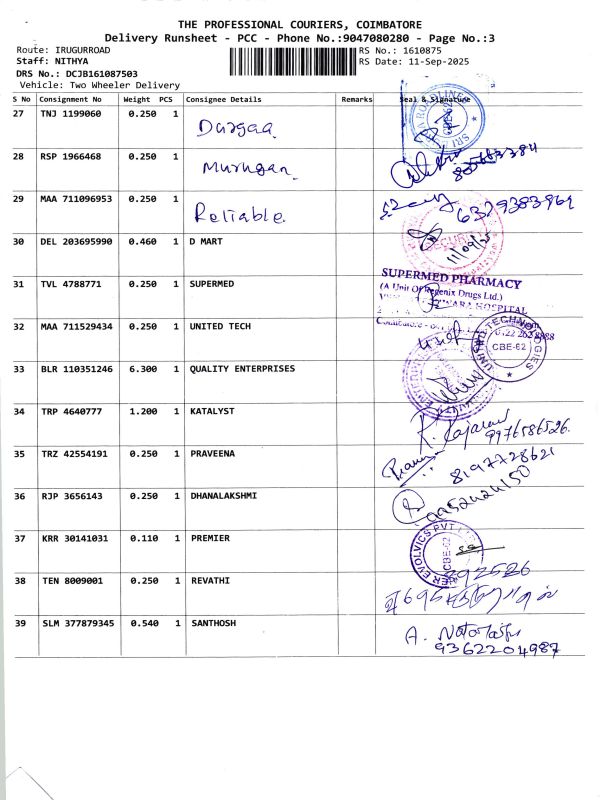 THE PROFESSIONAL COURIERS, COIMBATORE
Delivery Runsheet - PCC - Phone No.:9047080280 - Page No.:3
Route: IRUGURROAD
RS No.: 1610875
Staff: NITHYA
RS Date: 11-Sep-2025
DRS No.: DCJB161087503
Vehicle: Two Wheeler Delivery
S No Consignment No Weight PCS Consignee Details Remarks Seal & Signature
27 TNJ 1199060 0.250 1 Durgaa
CBE-62
28 RSP 1966468 0.250 1 Murugan
29 MAA 711096953 0.250 1 Reliable
6379383961
30 DEL 203695990 0.460 1 D MART
SECURITY
11/09/25
31 TVL 4788771 0.250 1 SUPERMED
SUPERMED PHARMACY
(A Unit Of Regenix Drugs Ltd.)
HOSPITAL
32 MAA 711529434 0.250 1 UNITED TECH
UNITED TECHNOLOGIES
CBE-62
33 BLR 110351246 6.300 1 QUALITY ENTERPRISES
34 TRP 4640777 1.200 1 KATALYST
9976586526
35 TRZ 42554191 0.250 1 PRAVEENA
8197728621
36 RJP 3656143 0.250 1 DHANALAKSHMI
9952424150
37 KRR 30141031 0.110 1 PREMIER
EVOLVICS PVT
CBE-62
38 TEN 8009001 0.250 1 REVATHI
39 SLM 377879345 0.540 1 SANTHOSH
9362204987